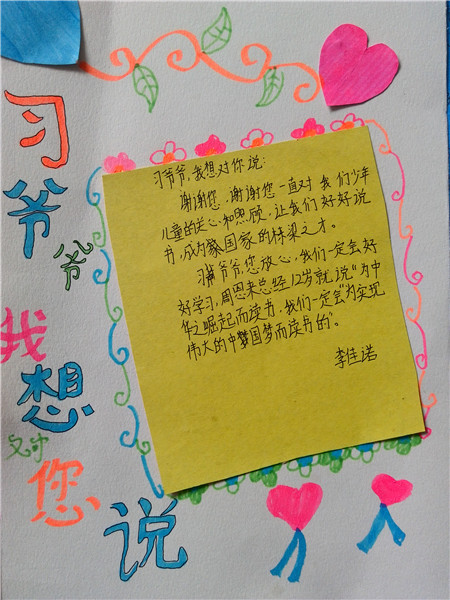 习爷爷
我想
对您
说
习爷爷,我想对你说:
谢谢您,谢谢您一直对我们少年
儿童的关心和照顾,让我们好好说
书,成为国家的栋梁之才。
习爷爷,您放心,我们一定会好
好学习,周恩来总经12岁就说“为中
华之崛起而读书,我们一定会“为实现
伟大的中梦国梦而读书的”。
李佳诺